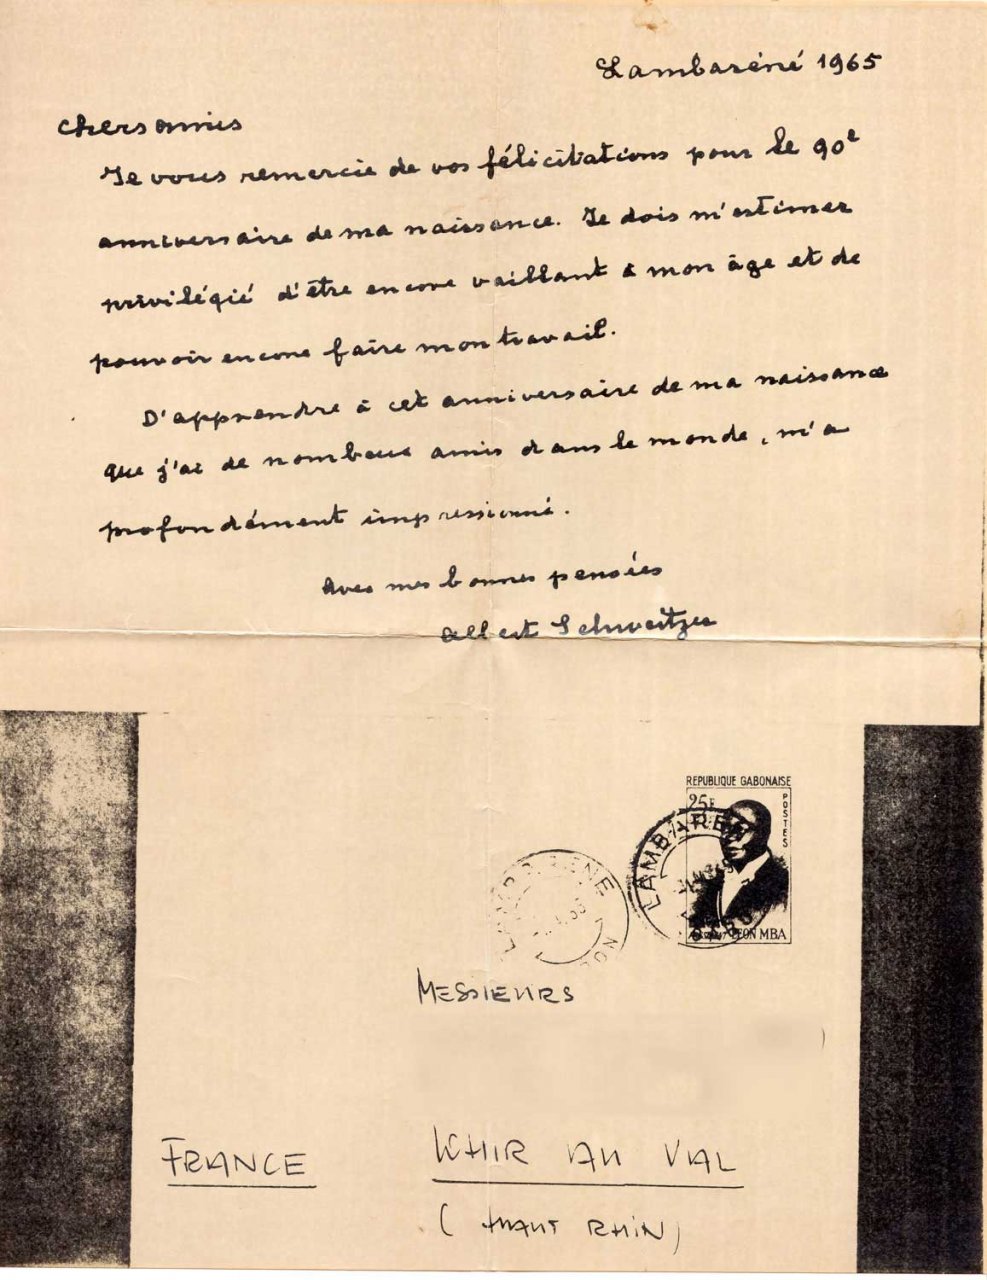 Lambaréné 1965
Chers amis
Je vous remercie de vos félicitations pour le 90e
anniversaire de ma naissance. Je dois m'estimer
privilégié d'être encore vaillant à mon âge et de
pouvoir encore faire mon travail.
D'apprendre à cet anniversaire de ma naissance
que j'ai de nombeux amis dans le monde, m'a
profondément impressionné.
Avec mes bonnes pensées
Albert Schweitzer
REPUBLIQUE GABONAISE
25F
POSTES
LAMBARENE
LAMBARENE
LEON MBA
MESSIEURS
FRANCE
WHIR AU VAL
(HAUT RHIN)